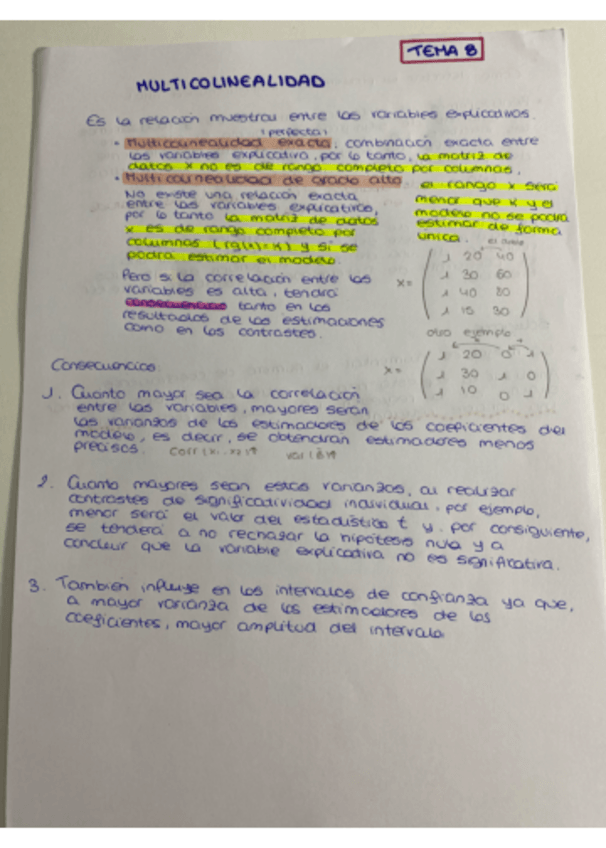 TEMA 8
MULTICOLINEALIDAD
Es la relación muestral entre las variables explicativas.
(perfecta)
• Multicolinealidad exacta, combinación exacta entre
las variables explicativa, por lo tanto, la matriz de
datos x no es de rango completo por columnas,
el rango x será
menor que K y el
modelo no se podrá
estimar de forma
única.
• Multicolinealidad de grado alto
No existe una relación exacta
entre las variables explicativas,
por lo tanto la matriz de datos
x es de rango completo por
columnas (rg(x)=K) y si se
podrá estimar el modelo.
Pero si la correlación entre las
variables es alta, tendrá
consecuencias tanto en los
resultados de las estimaciones
como en los contrastes.
es doble
x=
1 20 40
1 30 60
1 40 80
1 15 30
otro ejemplo
x=
1 20 0 1
1 30 1 0
1 10 0 1
Consecuencias:
1. Cuanto mayor sea la correlación
entre las variables, mayores serán
las varianzas de los estimadores de los coeficientes del
modelo, es decir, se obtendrán estimadores menos
precisos.
2. Cuanto mayores sean estas varianzas, al realizar
contrastes de significatividad individual, por ejemplo,
menor será el valor del estadístico t y, por consiguiente,
se tenderá a no rechazar la hipótesis nula y a
concluir que la variable explicativa no es significativa.
3. También influye en los intervalos de confianza ya que,
a mayor varianza de los estimadores de los
coeficientes, mayor amplitud del intervalo